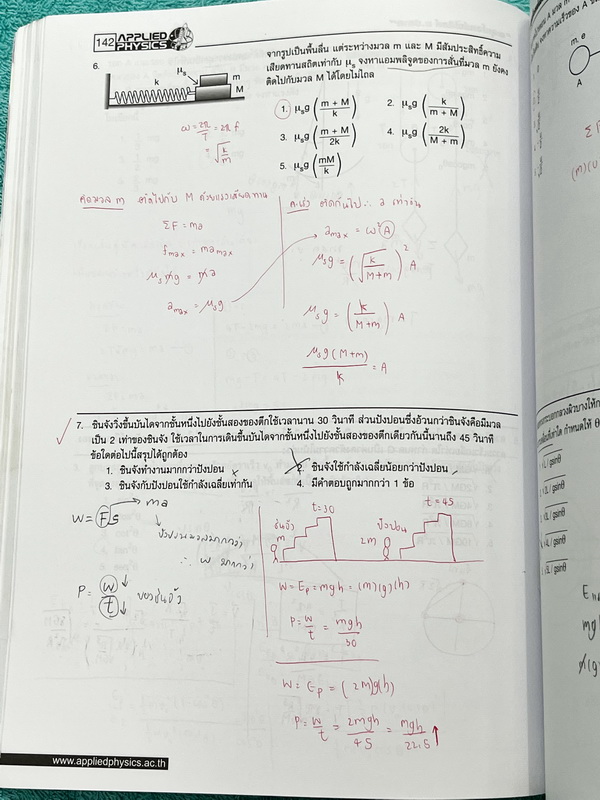 142 APPLIED PHYSICS
6.
จากรูปเป็นพื้นลื่น แต่ระหว่างมวล m และ M มีสัมประสิทธิ์ความ
เสียดทานสถิตเท่ากับ μs จงหาแอมพลิจูดของการสั่นที่มวล m ยังคง
ติดไปกับมวล M ได้โดยไม่ไถล
μs
k
m
M
1. μsg (m + M / k)
2. μsg (k / m + M)
3. μsg (m + M / 2k)
4. μsg (2k / M + m)
5. μsg (mM / k)
ω = 2π/T = 2π f
= √k/m
คิดมวล m ติดไปกับ M ด้วยแรงเสียดทาน
ΣF = ma
fmax = mamax
μsmg = ma
amax = μsg
ติดกันไป ∴ a เท่ากัน
amax = ω²A
μsg = (√k/M+m)² A
μsg = (k/M+m) A
μsg(M+m)/k = A
7. ชินจังวิ่งขึ้นบันไดจากชั้นหนึ่งไปยังชั้นสองของตึกใช้เวลานาน 30 วินาที ส่วนปังปอนซึ่งอ้วนกว่าชินจังคือมีมวล
เป็น 2 เท่าของชินจัง ใช้เวลาในการเดินขึ้นบันไดจากชั้นหนึ่งไปยังชั้นสองของตึกเดียวกันนี้นานถึง 45 วินาที
ข้อใดต่อไปนี้สรุปได้ถูกต้อง
1. ชินจังทำงานมากกว่าปังปอน
2. ชินจังใช้กำลังเฉลี่ยน้อยกว่าปังปอน
3. ชินจังกับปังปอนใช้กำลังเฉลี่ยเท่ากัน
4. มีคำตอบถูกมากกว่า 1 ข้อ
W = Fs
ma
ปังปอนมวลมากกว่า
∴ W มากกว่า
P = W/t ของชินจัง
ชินจัง
m
t=30
ปังปอน
2m
t=45
W = Ep = mgh = (m)(g)(h)
P = W/t = mgh/30
W = Ep = (2m)g(h)
P = W/t = 2mgh/45 = mgh/22.5
www.appliedphysics.ac.th
m, e
A